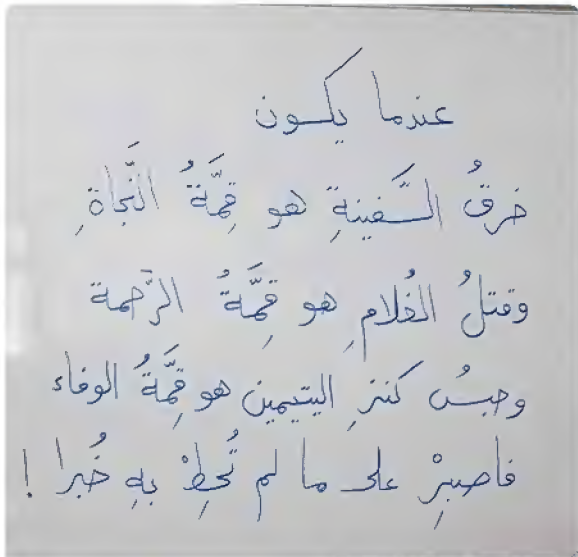 عندما يكون
خرقُ السَّفينةِ هو قِمَّةُ النَّجاةِ
وقتلُ الغُلامِ هو قِمَّةُ الرَّحمة
وحبسُ كنزِ اليتيمين هو قِمَّةُ الوفاء
فاصبرْ على ما لم تُحِطْ بهِ خُبرا !